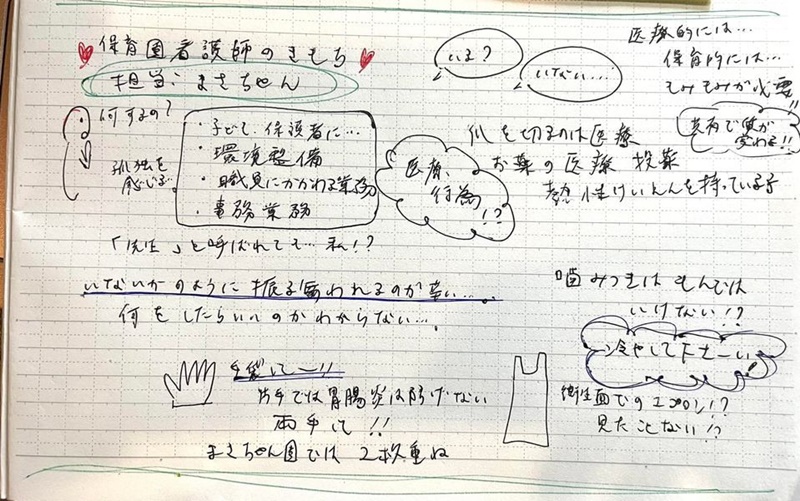 保育園看護師のきもち
担当:まさちゃん
いる?
いない…
医療的には…
保育的には…
もみもみが必要!!
共有で質が
変わる!!
何するの?
孤独を
感じる…
・子ども、保護者に…
・環境整備
・職員にかかわる業務
・事務業務
医療
行為
!?
爪を切るのは医療
お薬の医療 投薬
熱性けいれんを持っている子
「先生」と呼ばれても…私!?
いないかのように振る舞われるのが辛い…
何をしたらいいのかわからない…
噛みつきはもんでは
いけない!?
冷やして下さーい!
手袋してー!!
片手では胃腸炎は防げない
両手で!!
まさちゃん園では2枚重ね
衛生面でのエプロン!?
見たことない!?